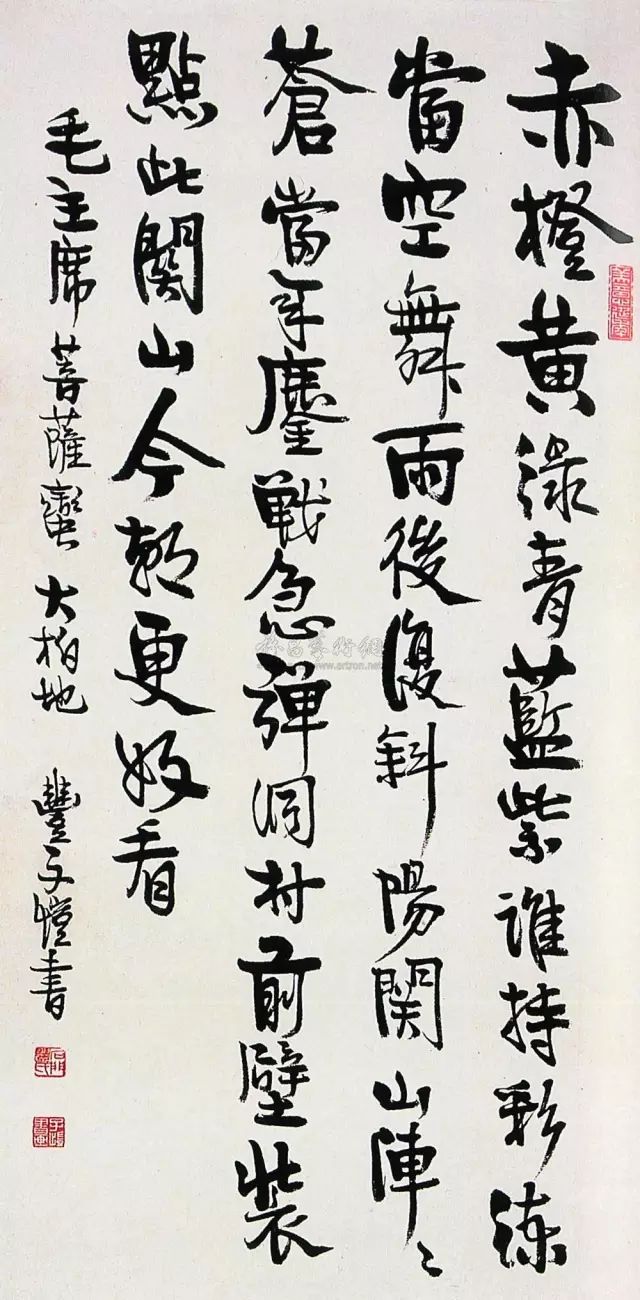 赤橙黃綠青藍紫誰持彩練
當空舞雨後復斜陽關山陣〻
蒼當年鏖戰急彈洞村前壁裝
點此關山今朝更好看
毛主席 菩薩蠻 大柏地 豐子愷書
美意延年
www.artron.net